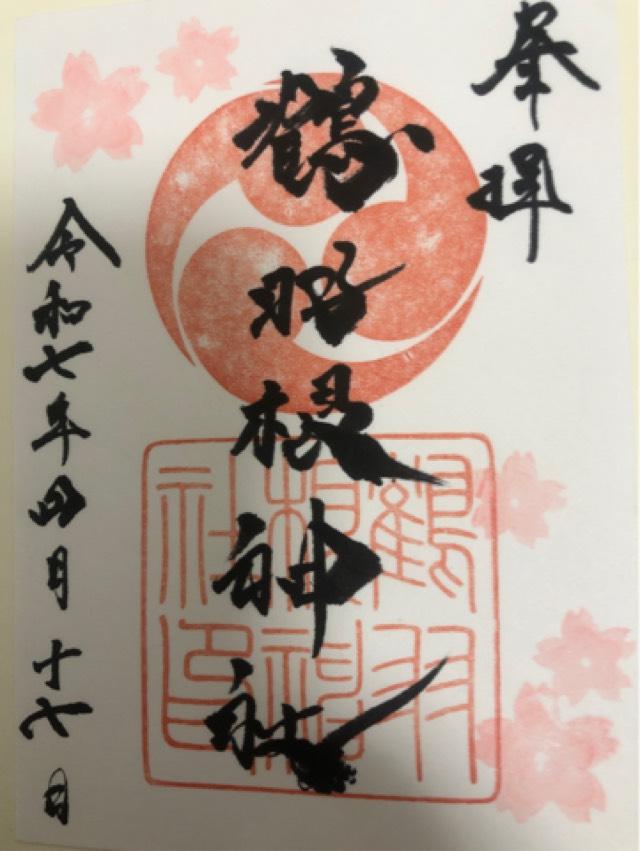 奉拝
鶴羽根神社
鶴羽
根神
社印
令和七年四月十七日